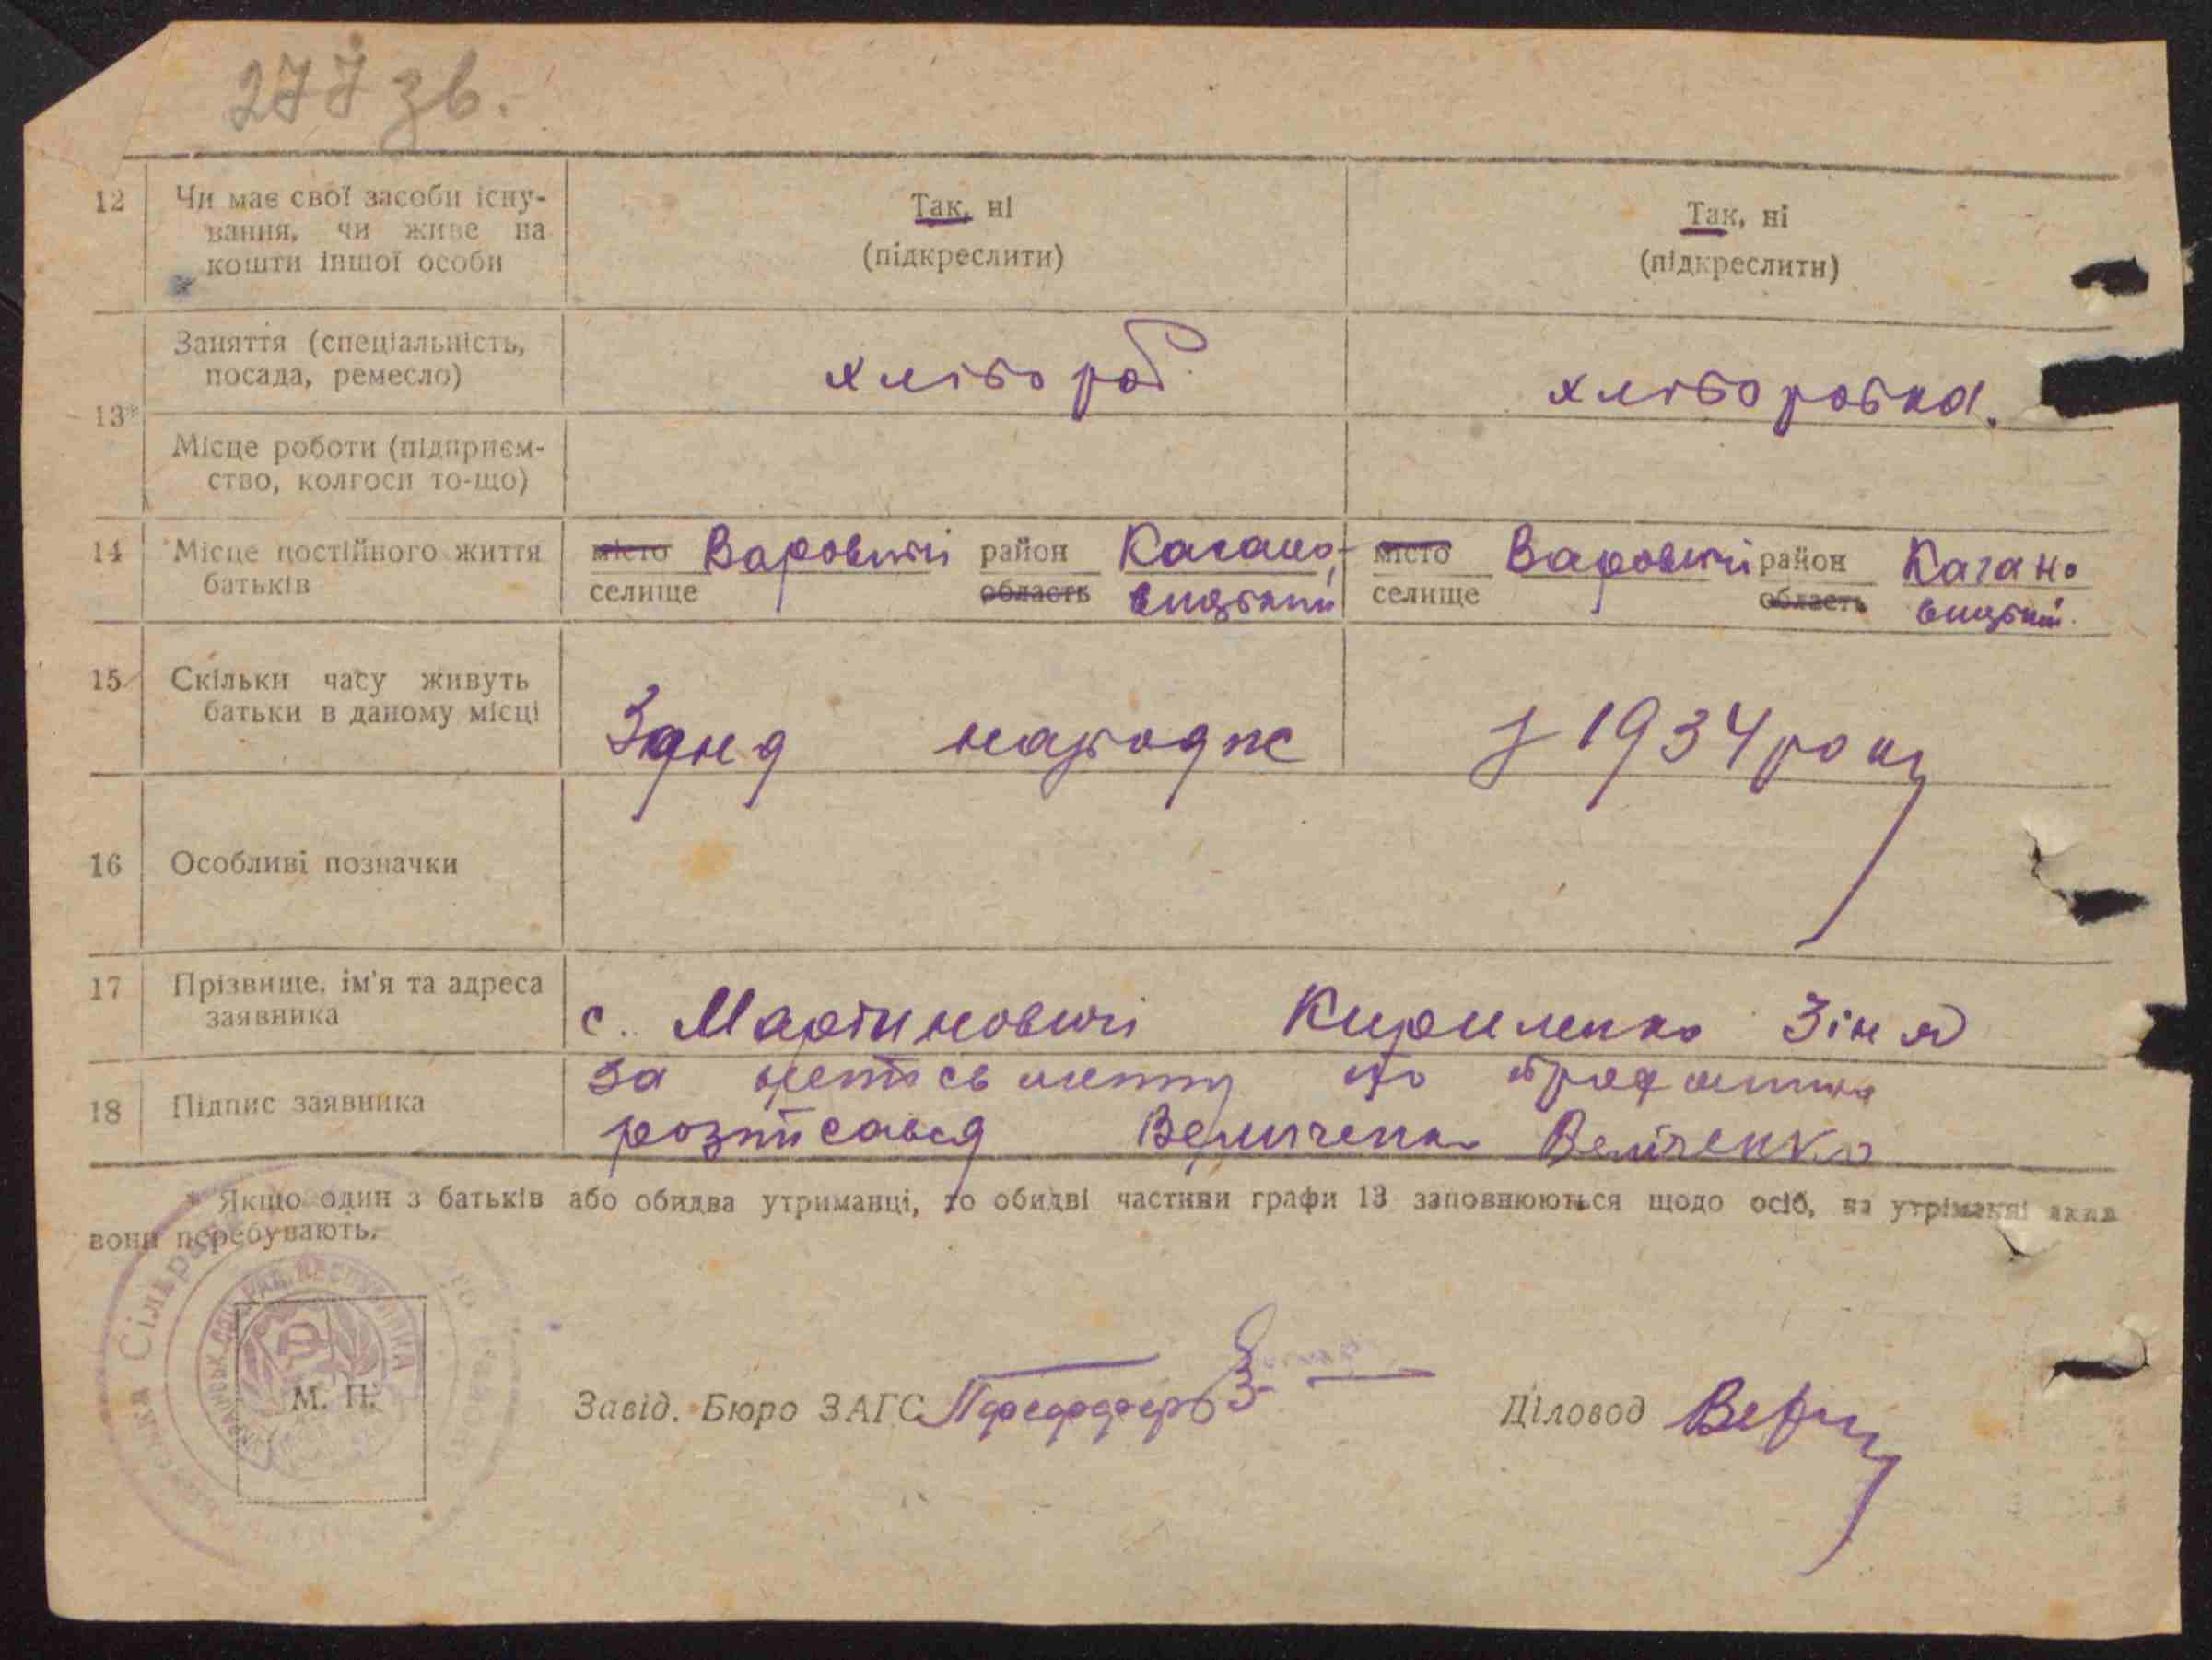 277 зв.
12 Чи має свої засоби існу-
вання, чи живе на
кошти іншої особи
Так, ні
(підкреслити)
Так, ні
(підкреслити)
13*
Заняття (спеціальність,
посада, ремесло)
хлібороб
хліборобка.
Місце роботи (підприєм-
ство, колгосп то-що)
14 Місце постійного життя
батьків
місто
селище
Варовичі
район
область
Кагано-
вицький
місто
селище
Варовичі
район
область
Кагано
вицький.
15 Скільки часу живуть
батьки в даному місці
народж
з 1934 року
16 Особливі позначки
17 Прізвище, ім'я та адреса
заявника
с. Мартиновичі Кириленко Зіня
18 Підпис заявника
за
розписався Величенко Величенко
* Якщо один з батьків або обидва утриманці, то обидві частини графи 13 заповнюються щодо осіб, на утриманні яких
вони перебувають.
Сільрада
М. П.
Завід. Бюро ЗАГС
Діловод